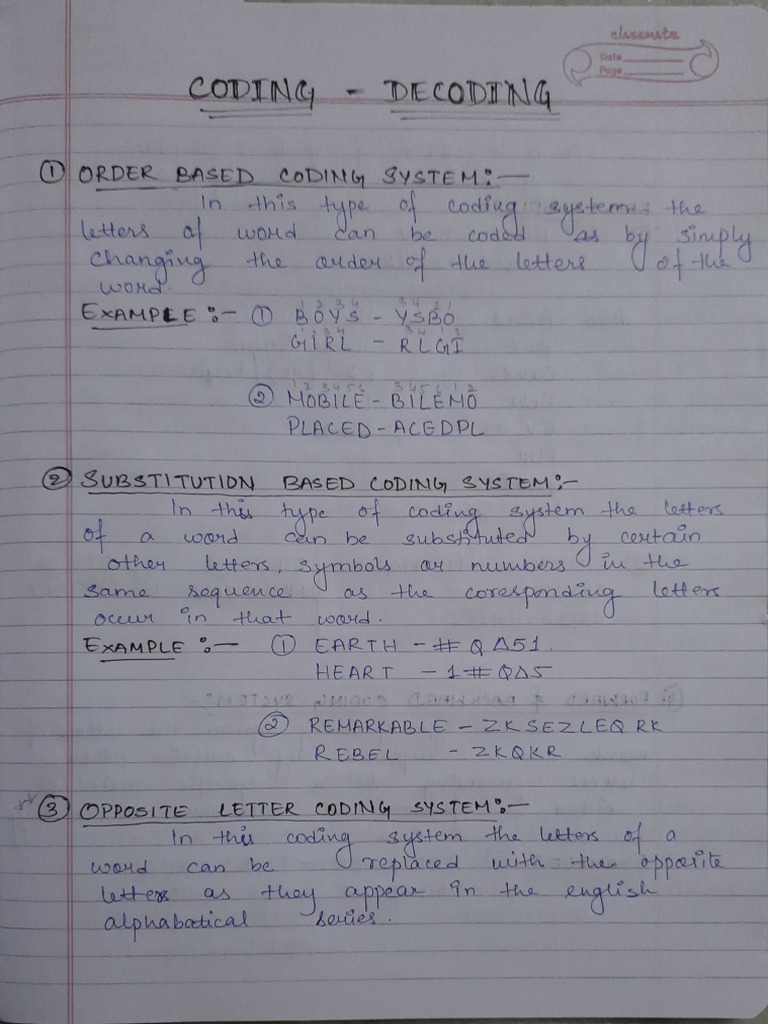 classmate
Date
Page
CODING - DECODING
① ORDER BASED CODING SYSTEM:-
In this type of coding system the
letters of word can be coded as by simply
changing the order of the letters of the
word.
EXAMPLE:- ① BOYS - YSBO
GIRL - RLGI
② MOBILE - BILEMO
PLACED - ACEDPL
② SUBSTITUTION BASED CODING SYSTEM:-
In this type of coding system the letters
of a word can be substituted by certain
other letters, symbols or numbers in the
same sequence as the coresponding letters
occur in that word.
EXAMPLE:- ① EARTH - # Q Δ 5 1.
HEART - 1 # Q Δ 5
② REMARKABLE - ZKSEZLEQRK
REBEL - ZKQKR
③ OPPOSITE LETTER CODING SYSTEM:-
In this coding system the letters of a
word can be replaced with the opposite
letters as they appear in the english
alphabatical series.